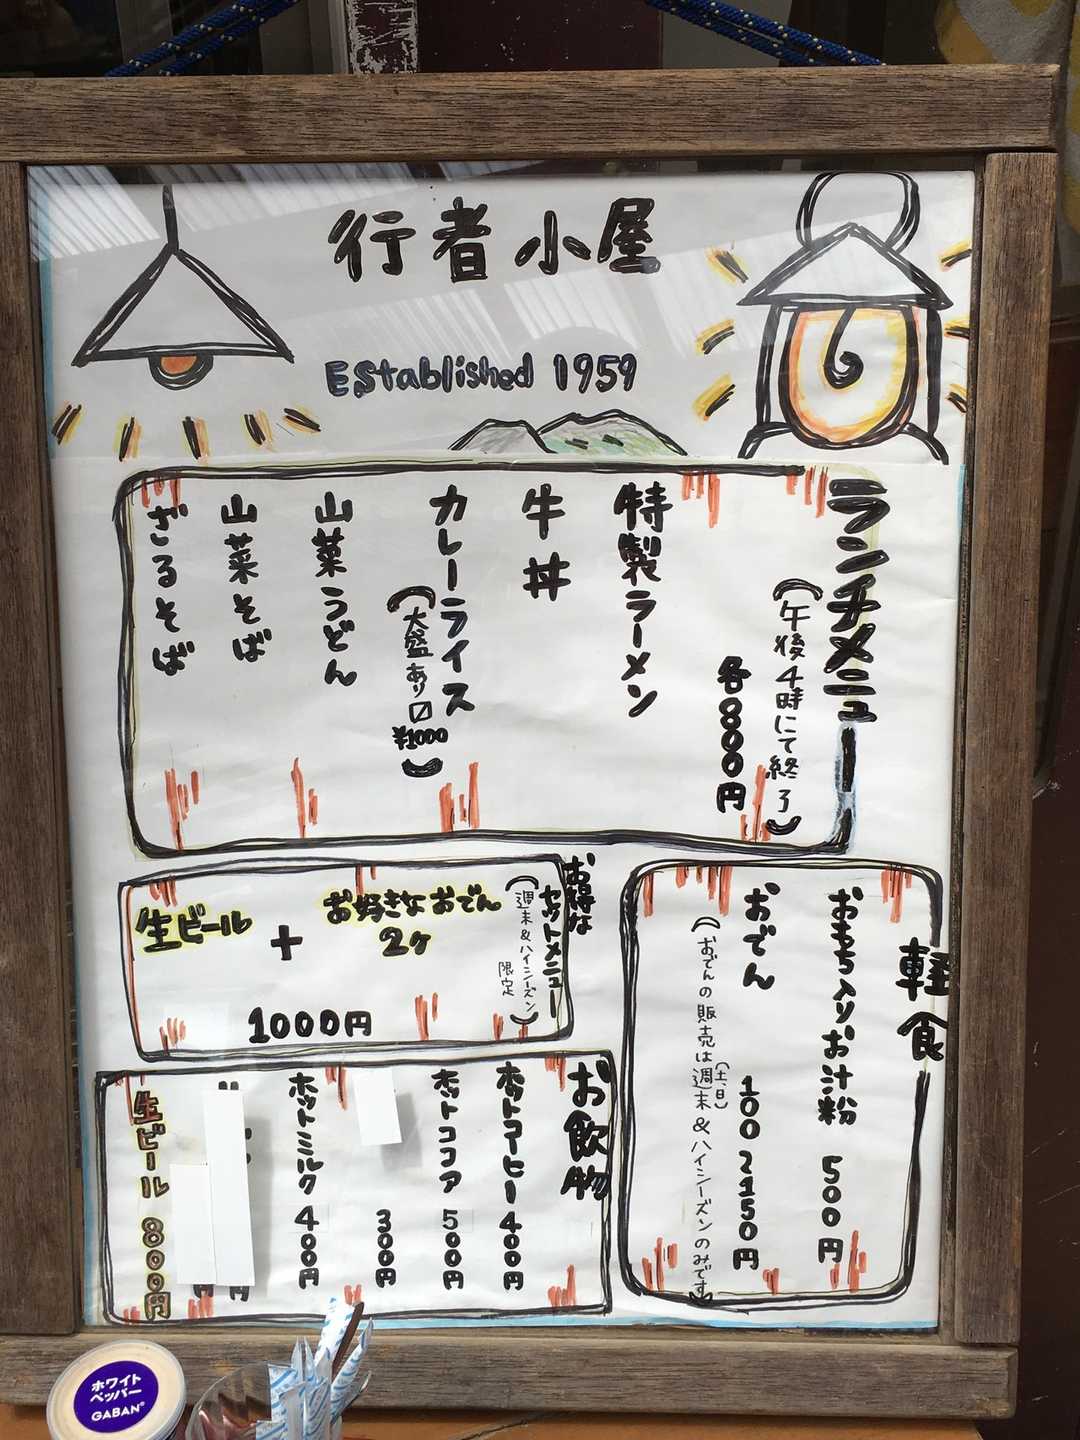 行者小屋
Established 1959
ランチメニュー
(午後4時にて終了)
各800円
特製ラーメン
牛丼
カレーライス
(大盛あり〼
¥1000)
山菜うどん
山菜そば
ざるそば
お得な
セットメニュー
(週末&ハイシーズン
限定)
お好きなおでん
2ヶ
+
生ビール
1000円
軽食
おもち入りお汁粉 500円
おでん 100~150円
(おでんの販売は週末&ハイシーズンのみです)
(土、日)
お飲物
ホットコーヒー 400円
ホットココア 500円
300円
ホットミルク 400円
円
円
生ビール 800円
ホワイト
ペッパー
GABAN®